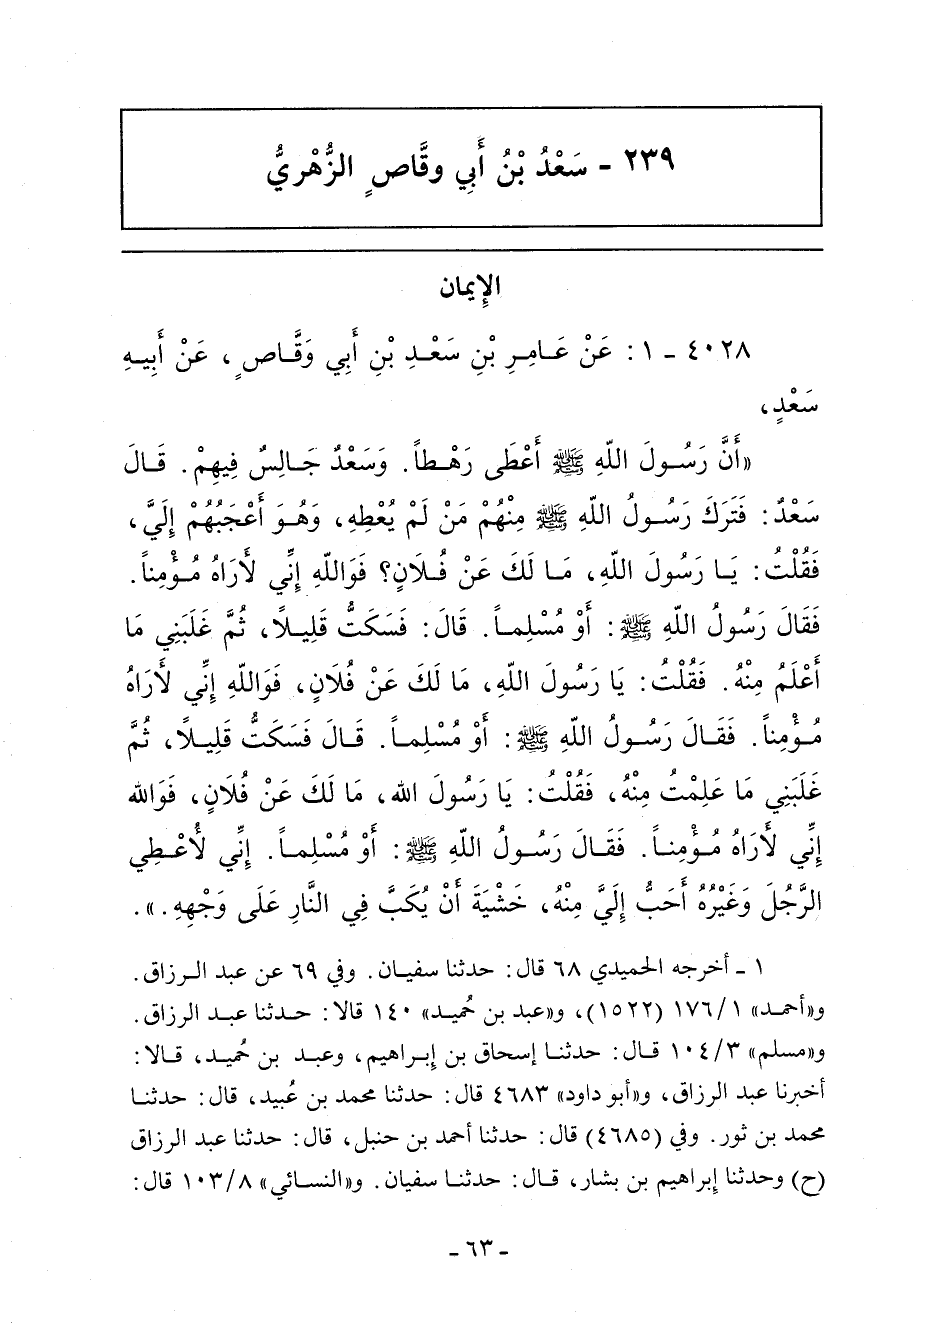 ٢٣٩ - سَعْدُ بْنُ أَبِي وقَّاصٍ الزُّهْرِيُّ
الإِيمان
٤٠٢٨ - ١ : عَنْ عَامِرِ بْنِ سَعْدِ بْنِ أَبِي وَقَّاصٍ ، عَنْ أَبِيهِ
سَعْدٍ ،
«أَنَّ رَسُولَ اللّهِ ﷺ أَعْطَى رَهْطاً. وَسَعْدٌ جَالِسٌ فِيهِمْ. قَالَ
سَعْدٌ: فَتَرَكَ رَسُولُ اللّهِ ﷺ مِنْهُمْ مَنْ لَمْ يُعْطِهِ، وَهُوَ أَعْجَبُهُمْ إِلَيَّ،
فَقُلْتُ: يَا رَسُولَ اللّهِ، مَا لَكَ عَنْ فُلَانٍ؟ فَوَاللهِ إِنِّي لأَرَاهُ مُؤْمِناً.
فَقَالَ رَسُولُ اللّهِ ﷺ: أَوْ مُسْلِماً. قَالَ: فَسَكَتُّ قَلِيلاً، ثُمَّ غَلَبَنِي مَا
أَعْلَمُ مِنْهُ. فَقُلْتُ: يا رَسُولَ اللّهِ، مَا لَكَ عَنْ فُلَانٍ، فَوَاللهِ إِنِّي لأَرَاهُ
مُؤْمِناً. فَقَالَ رَسُولُ اللّهِ ﷺ: أَوْ مُسْلِماً. قَالَ فَسَكَتُّ قَلِيلاً، ثُمَّ
غَلَبَنِي مَا عَلِمْتُ مِنْهُ، فَقُلْتُ: يا رَسُولَ الله، مَا لَكَ عَنْ فُلَانٍ، فَوَالله
إِنِّي لأَرَاهُ مُؤْمِناً. فَقَالَ رَسُولُ اللّهِ ﷺ: أَوْ مُسْلِماً. إِنِّي لأُعْطِي
الرَّجُلَ وَغَيْرُهُ أَحَبُّ إِلَيَّ مِنْهُ، خَشْيَةَ أَنْ يُكَبَّ فِي النَّارِ عَلَى وَجْهِهِ.».
١ - أخرجه الحميدي ٦٨ قال: حدثنا سفيان. وفي ٦٩ عن عبد الرزاق.
و«أحمد» ١٧٦/١ (١٥٢٢)، و«عبد بن حُميد» ١٤٠ قالا: حدثنا عبد الرزاق.
و«مسلم» ١٠٤/٣ قال: حدثنا إسحاق بن إبراهيم، وعبد بن حُميد، قالا:
أخبرنا عبد الرزاق، و«أبو داود» ٤٦٨٣ قال: حدثنا محمد بن عُبيد، قال: حدثنا
محمد بن ثور. وفي (٤٦٨٥) قال: حدثنا أحمد بن حنبل، قال: حدثنا عبد الرزاق
(ح) وحدثنا إبراهيم بن بشار، قال: حدثنا سفيان. و«النسائي» ١٠٣/٨ قال:
- ٦٣ -